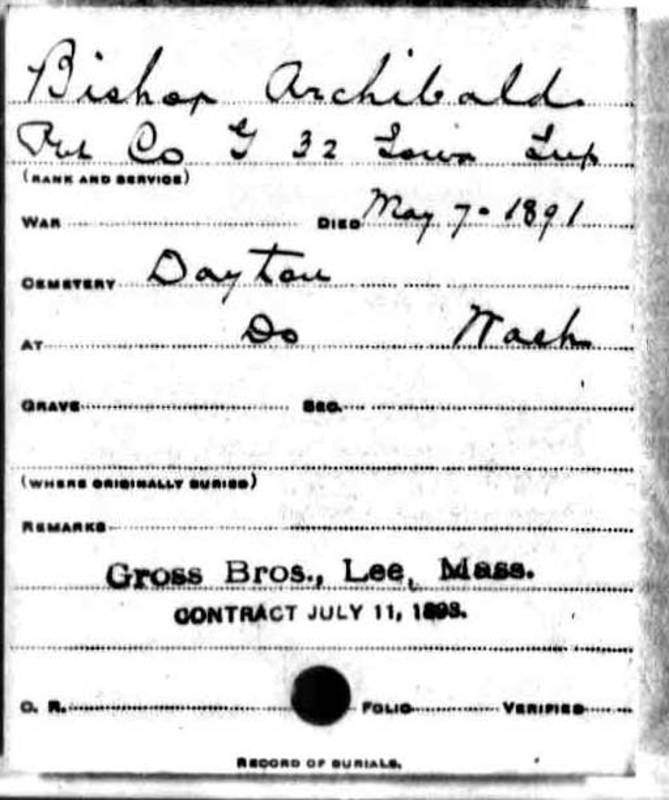 Bishop Archibald
Pvt Co G 32 Iowa Inf
(RANK AND SERVICE)
WAR DIED May 7- 1891
CEMETERY Dayton
AT Do Wash
GRAVE SEC.
(WHERE ORIGINALLY BURIED)
REMARKS
Gross Bros., Lee, Mass.
CONTRACT JULY 11, 1898.
O. R. FOLIO VERIFIED
RECORD OF BURIALS.